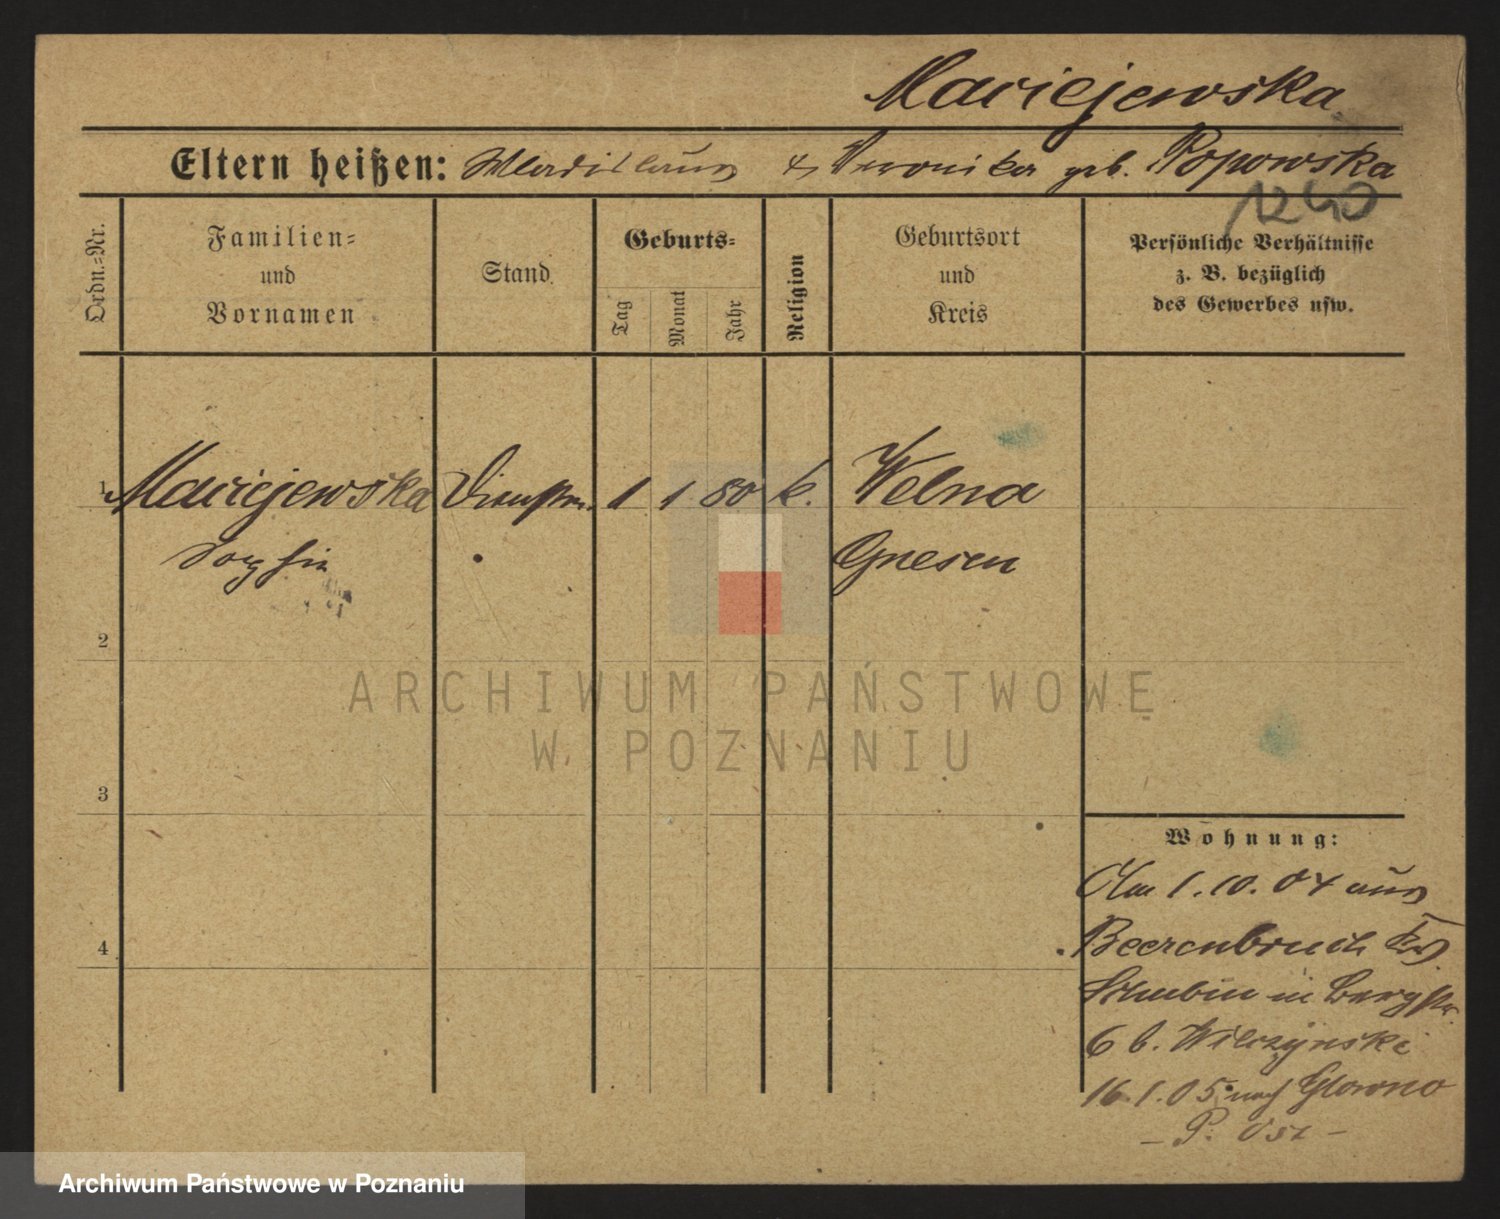 Maciejewska
Eltern heißen: Wladislaus & Veronika geb. Popowska
1240
Ordn.=Nr.
Familien=
und
Vornamen
Stand
Geburts=
Tag
Monat
Jahr
Religion
Geburtsort
und
Kreis
Persönliche Verhältnisse
z. B. bezüglich
des Gewerbes usw.
1 Maciejewska Dienstm. 1 1 80 k. Welna
Sophie Gnesen
2
ARCHIWUM PAŃSTWOWE
W POZNANIU
3
Wohnung:
Am 1.10.04 aus
4
Beerenbruch Kr
Schubin in Bergstr.
6 b. Wilczynski
16.1.05 nach Glowno
- P. Ost -
Archiwum Państwowe w Poznaniu